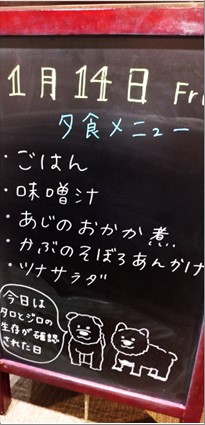 1月14日 Fri
夕食メニュー
・ごはん
・味噌汁
・あじのおかか煮
・かぶのそぼろあんかけ
・ツナサラダ
今日は
タロとジロの
生存が確認
された日